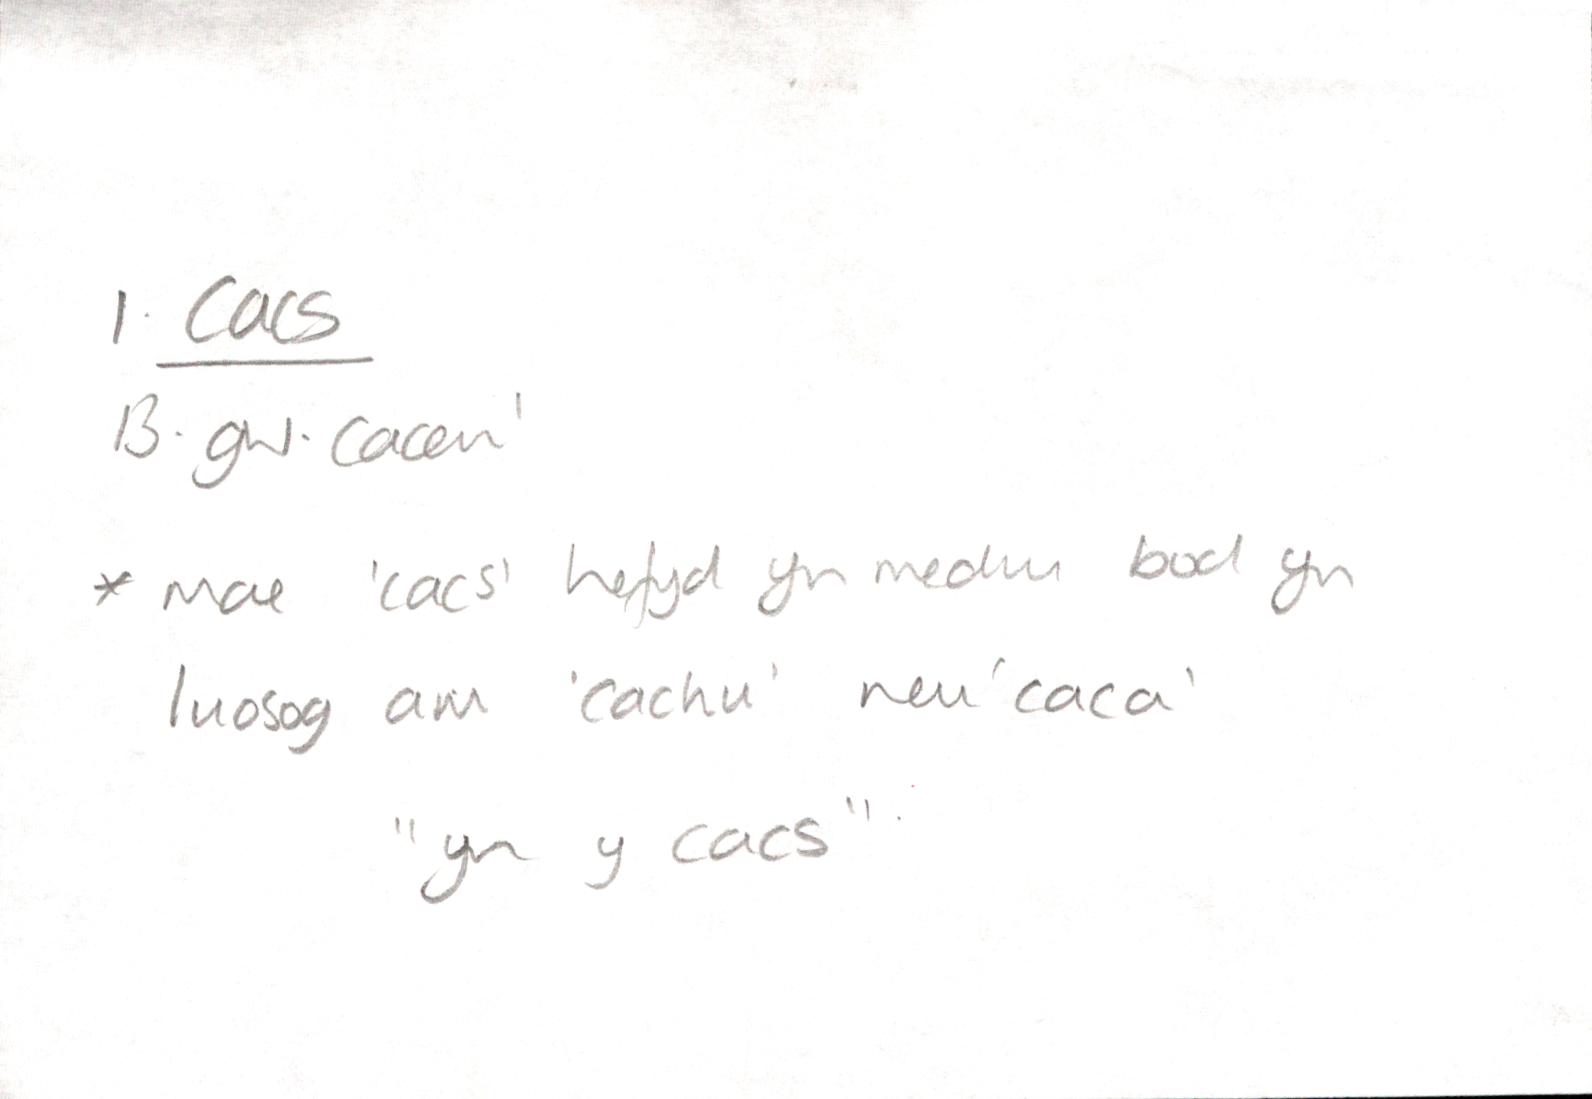 1. Cacs
B. gw. cacen'
* mae 'cacs' hefyd yn medru bod yn
luosog am 'cachu' neu 'caca'
"yn y cacs".